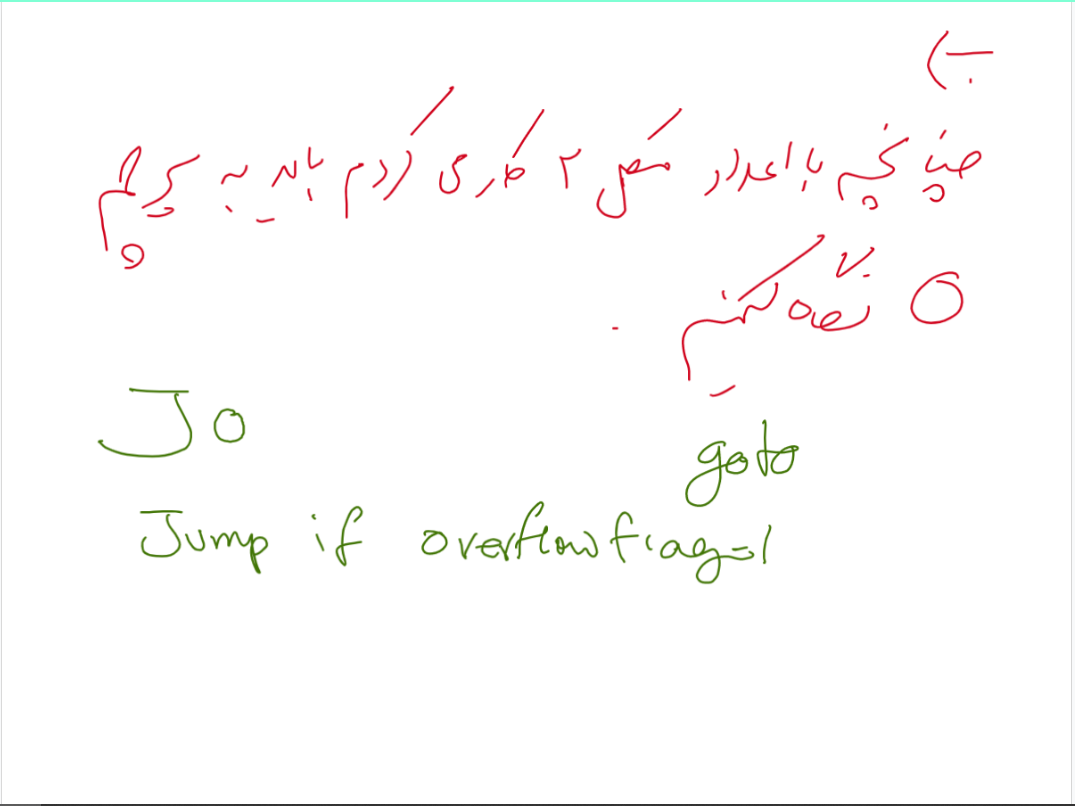 ب)
چنانچه با اعداد مکمل ۲ کار می کردیم باید به پرچم
O نگاه کنیم .
Jo
goto
Jump if overflow flag=1